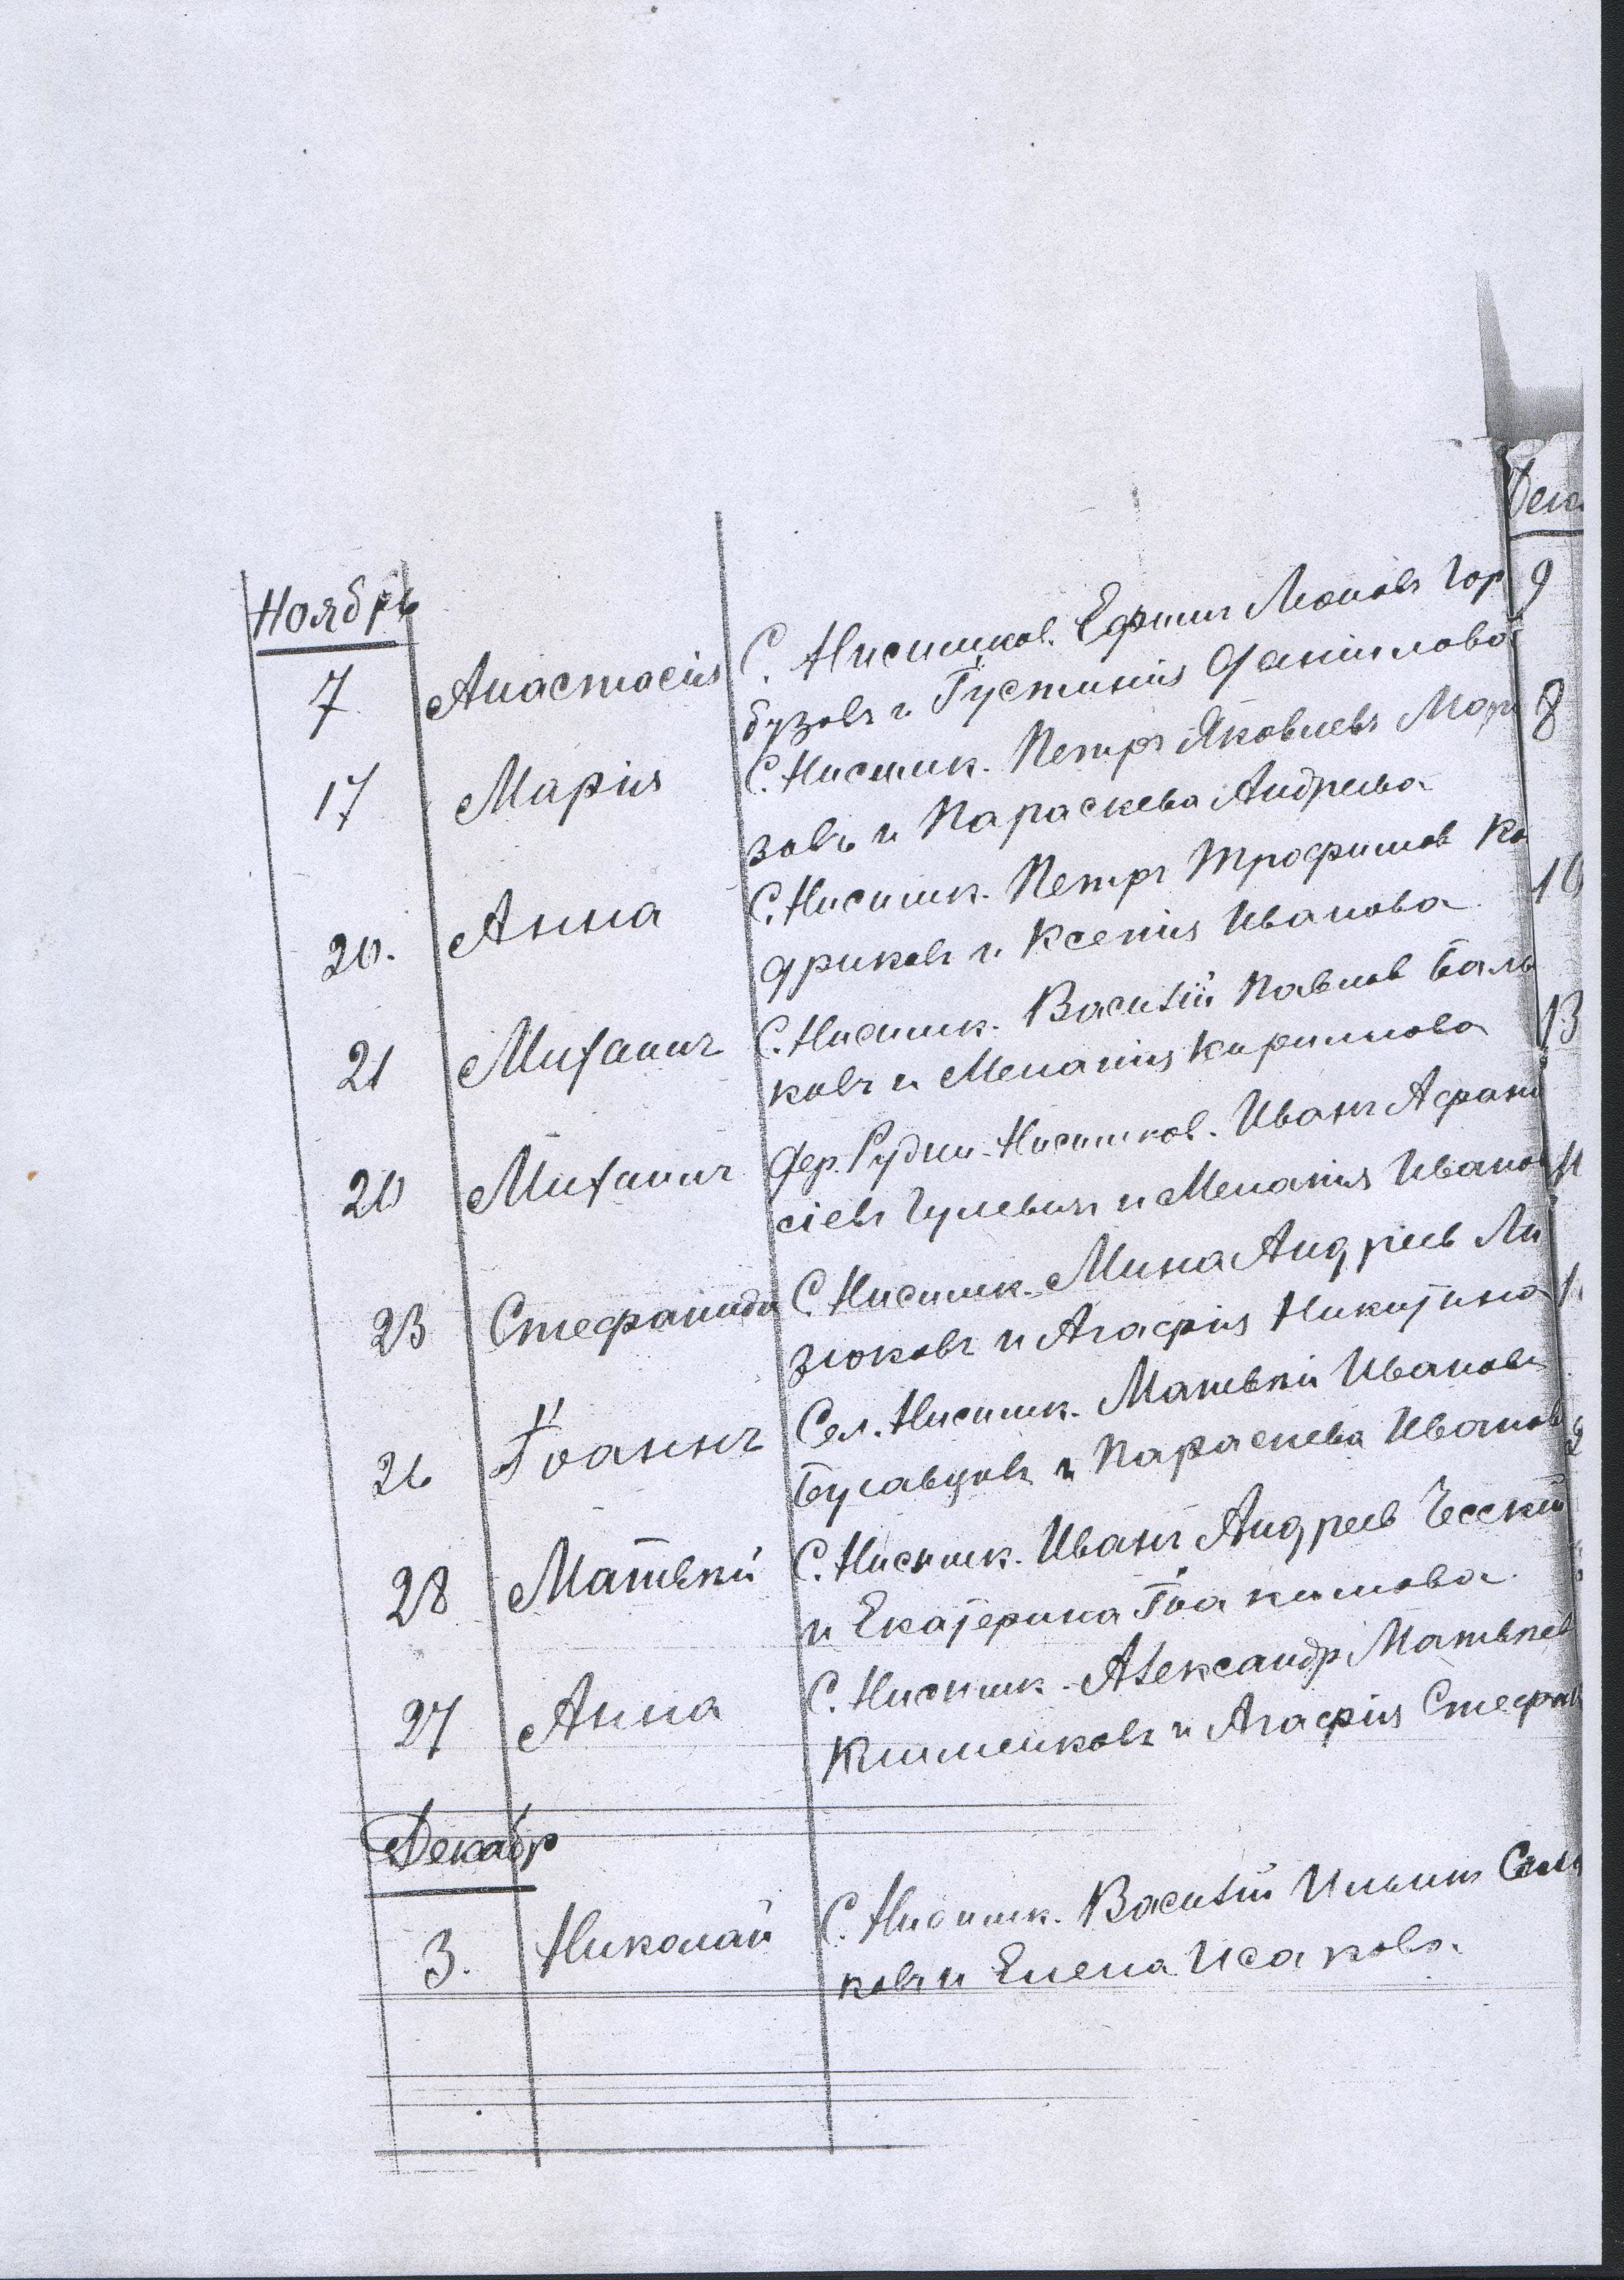 Ноябрь
7 Анастасія С. Нисимков. Ефимъ Леоновъ Гор
бузовъ и Іустинія Даніилова
17 Марія С. Нисимк. Петръ Яковлевъ Мор
зовъ и Параскева Андреева
20. Анна С. Нисимк. Петръ Трофимов Ко
дриковъ и Ксенія Иванова
21 Михаилъ С. Нисимк. Василій Павлов Баль
ковъ и Меланія Кириллова
20 Михаилъ Дер. Рудни-Нисимков. Иванъ Афана
сіевъ Гулевичъ и Меланія Иванов
23 Стефанида С. Нисимк. Мина Андреев Ли
зюковъ и Агафія Никитина
26 Іоаннъ Сел. Нисимк. Матвѣй Ивановъ
Булавцовъ и Параскева Иванов
28 Матвѣй С. Нисимк. Иванъ Андреев Чесскій
и Екатерина Іоакимова
27 Анна С. Нисимк. Александр Матвѣев
Клименковъ и Агафія Стефан
Декабр
3. Николай С. Нисимк. Василій Ильинъ
ковъ и Елена Исакова.
Дек
9
8
10
13